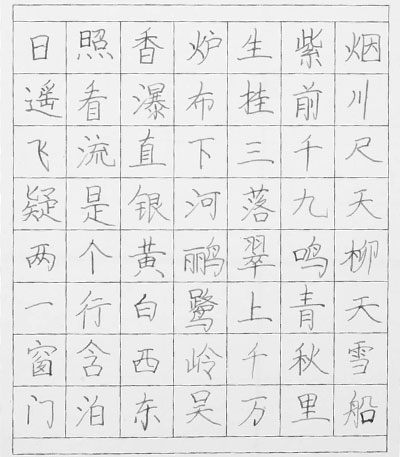 日照香炉生紫烟
遥看瀑布挂前川
飞流直下三千尺
疑是银河落九天
两个黄鹂翠鸣柳
一行白鹭上青天
窗含西岭千秋雪
门泊东吴万里船